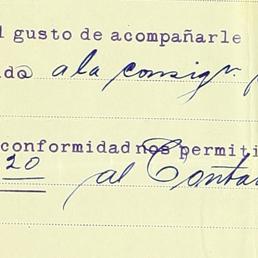 l gusto de acompañarle
ido a la consigr. p
conformidad nos permiti
20 al Conta